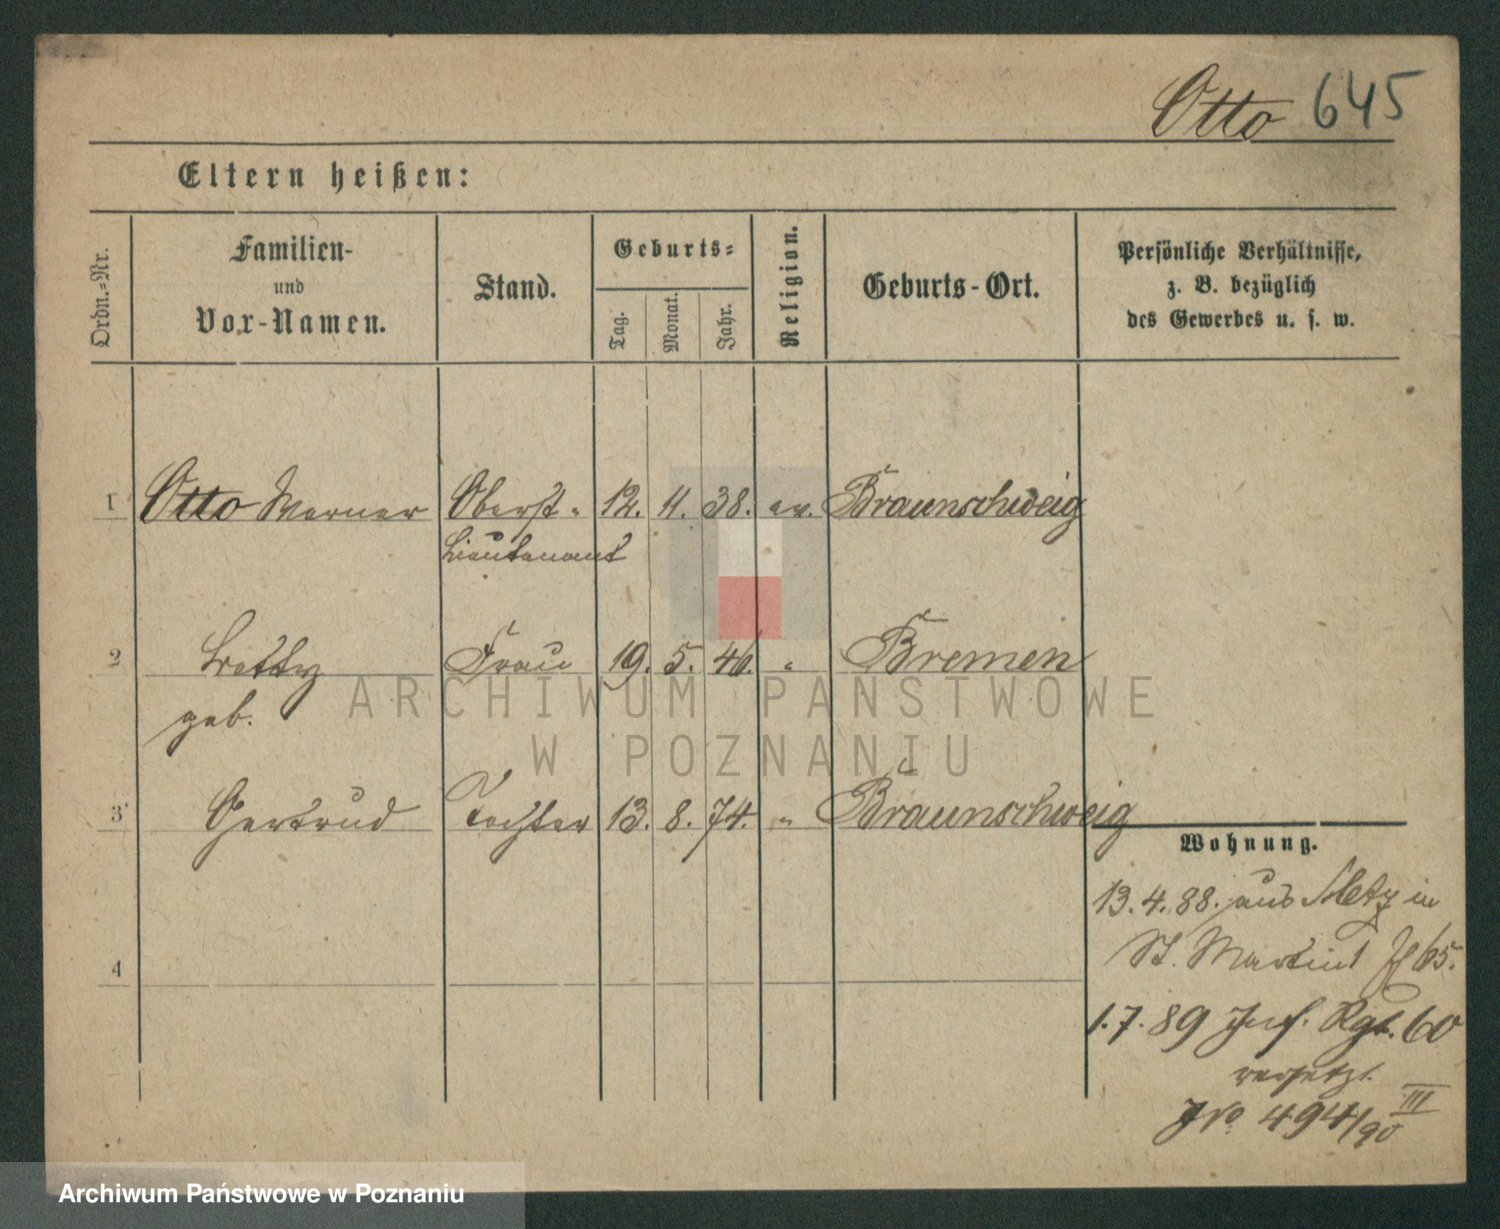 Otto 645
Eltern heißen:
Ordn.-Nr.
Familien-
und
Vor-Namen.
Stand.
Geburts-
Tag.
Monat.
Jahr.
Religion.
Geburts-Ort.
Persönliche Verhältnisse,
z. B. bezüglich
des Gewerbes u. s. w.
1 Otto Werner Oberst- 12. 11. 38. ev. Braunschweig
Lieutenant
2 Betty Frau 19. 5. 46. " Bremen
geb.
3 Gertrud Tochter 13. 8. 74. " Braunschweig
Wohnung.
13.4.88. aus Metz in
St. Martin 65.
4
1.7.89 Inf. Rgt. 60
versetzt.
No 494/90 III
ARCHIWUM PAŃSTWOWE
W POZNANIU
Archiwum Państwowe w Poznaniu